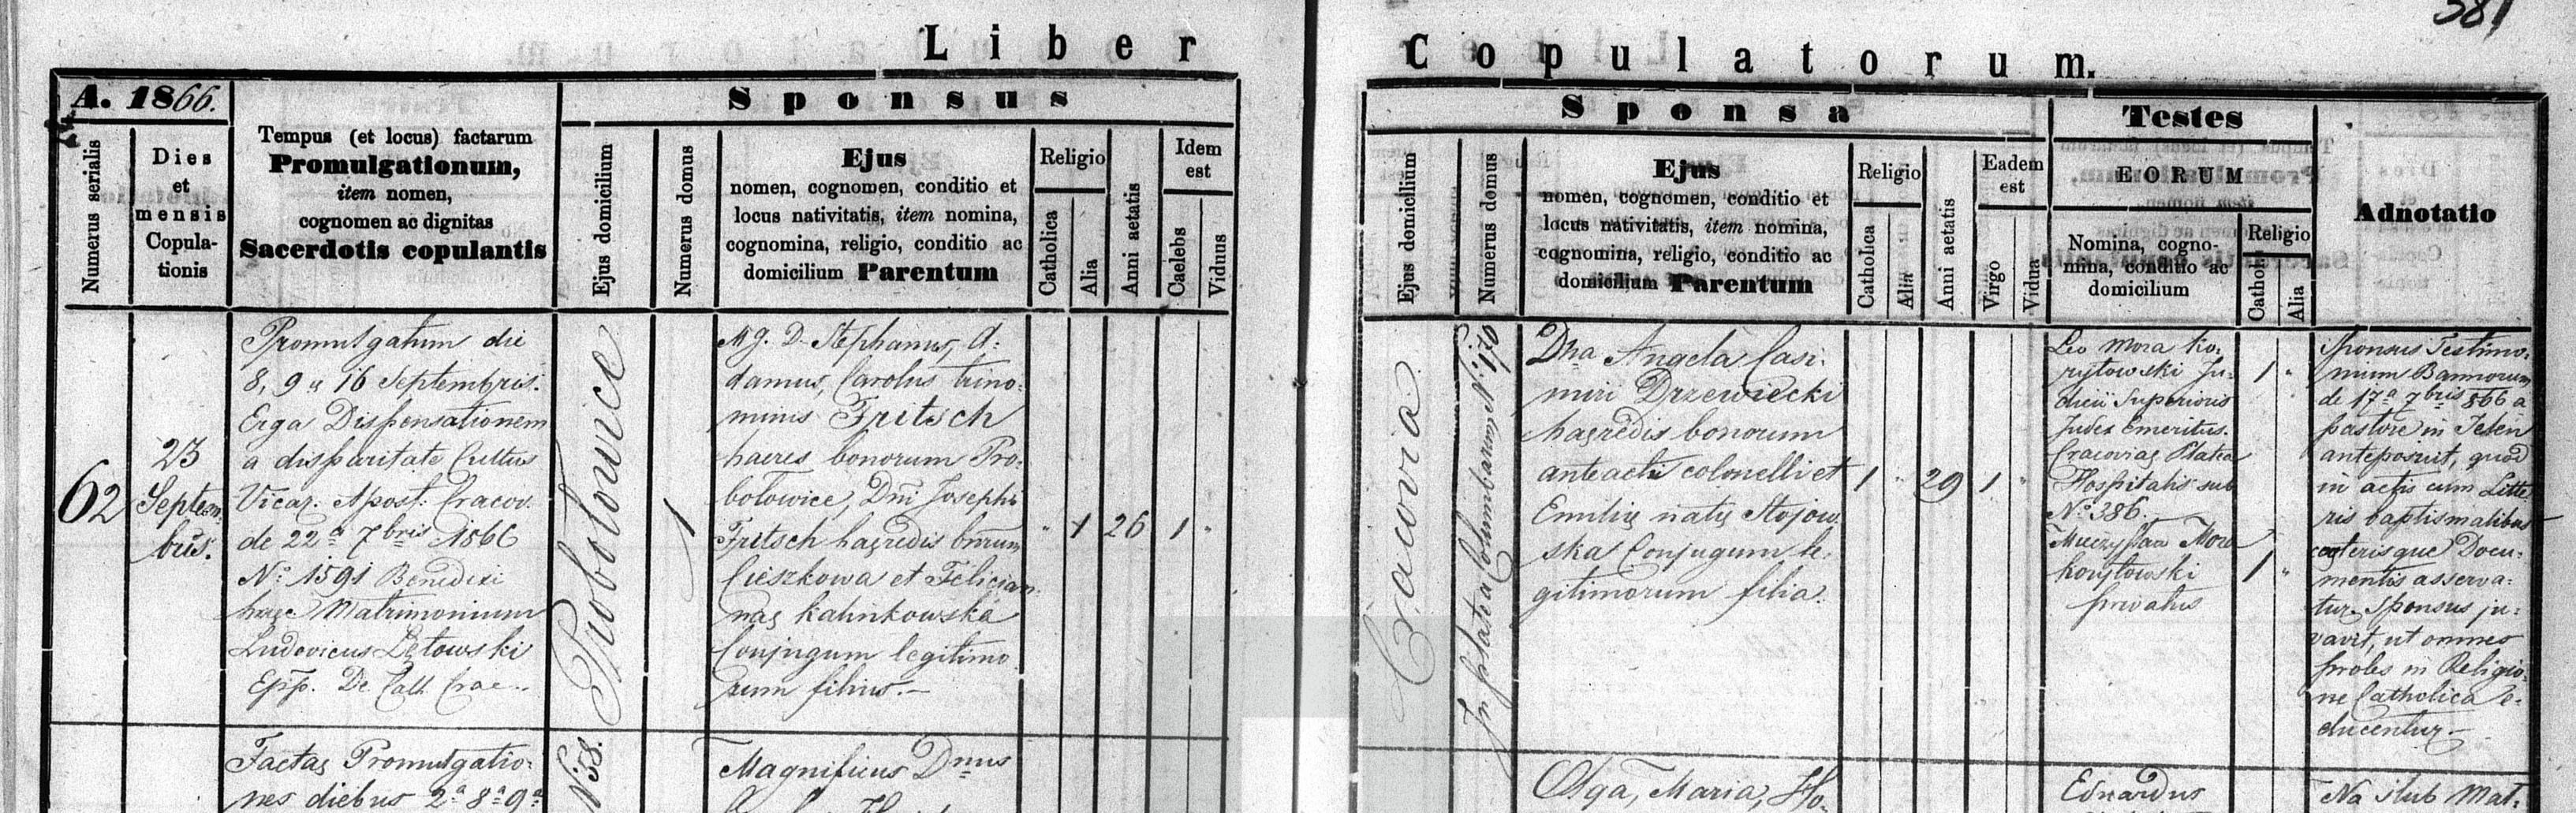 381
Liber
Copulatorum.
A. 1866.
Numerus serialis
Dies
et
mensis
Copula-
tionis
Tempus (et locus) factarum
Promulgationum,
item nomen,
cognomen ac dignitas
Sacerdotis copulantis
Sponsus
Ejus domicilium
Numerus domus
Ejus
nomen, cognomen, conditio et
locus nativitatis, item nomina,
cognomina, religio, conditio ac
domicilium Parentum
Religio
Catholica
Alia
Anni aetatis
Idem
est
Caelebs
Viduus
Sponsa
Ejus domicilium
Numerus domus
Ejus
nomen, cognomen, conditio et
locus nativitatis, item nomina,
cognomina, religio, conditio ac
domicilium Parentum
Religio
Catholica
Alia
Anni aetatis
Eadem
est
Virgo
Vidua
Testes
EORUM
Nomina, cogno-
mina, conditio ac
domicilium
Religio
Cathol
Alia
Adnotatio
62
23
Septem
bris.
Promulgatum die
8, 9 & 16 Septembris.
Erga Dispensationem
a disparitate Cultus
Vicar. Apost. Cracov.
de 22ª 7bris 1866
N: 1591 Benedixi
hoc Matrimonium
Ludovicus Lętowski
Epp. De Cath. Crac..
Probolowice
1
Mg. D. Stephanus, A:
damus, Carolus trino:
minis Fritsch
haeres bonorum Pro:
bolowice, Dni Josephi
Fritsch haęredis bnrum
Cieszkowa et Felician:
naę Kalinkowska
Conjugum legitimo
rum filius.—
" 1 26 1 "
Cracovia
In platea Columbarum N: 170
Dna Angela Casi:
miri Drzewiecki
haęredis bonorum
anteacti colonelli et
Emilię natę Stojow
ska Conjugum le:
gitimorum filia.
1 " 29 1 "
Leo Mora Ko:
rytowski Ju:
dicii Superioris
Judex Emeritus.
Cracoviaę Platea
Hospitalis sub
N: 386.
1 "
Mieczysław Mora
Korytowski
privatus
1 "
Sponsus Testimo:
nium Bannorum
de 17ª 7bris 866 a
pastore in
anteposuit, quod
in actis cum Litte
ris baptismalibus
coęterisque Docu:
mentis asserva:
tur. Sponsus ju:
ravit, ut omnes
proles in Religio:
ne Catholica e:
ducentur.—
Factaę Promulgatio:
nes diebus 2ª 8ª 9ª
N 58.
Magnificus Dnus
Olga, Maria, Ho:
Eduardus
Na ślub Mat: